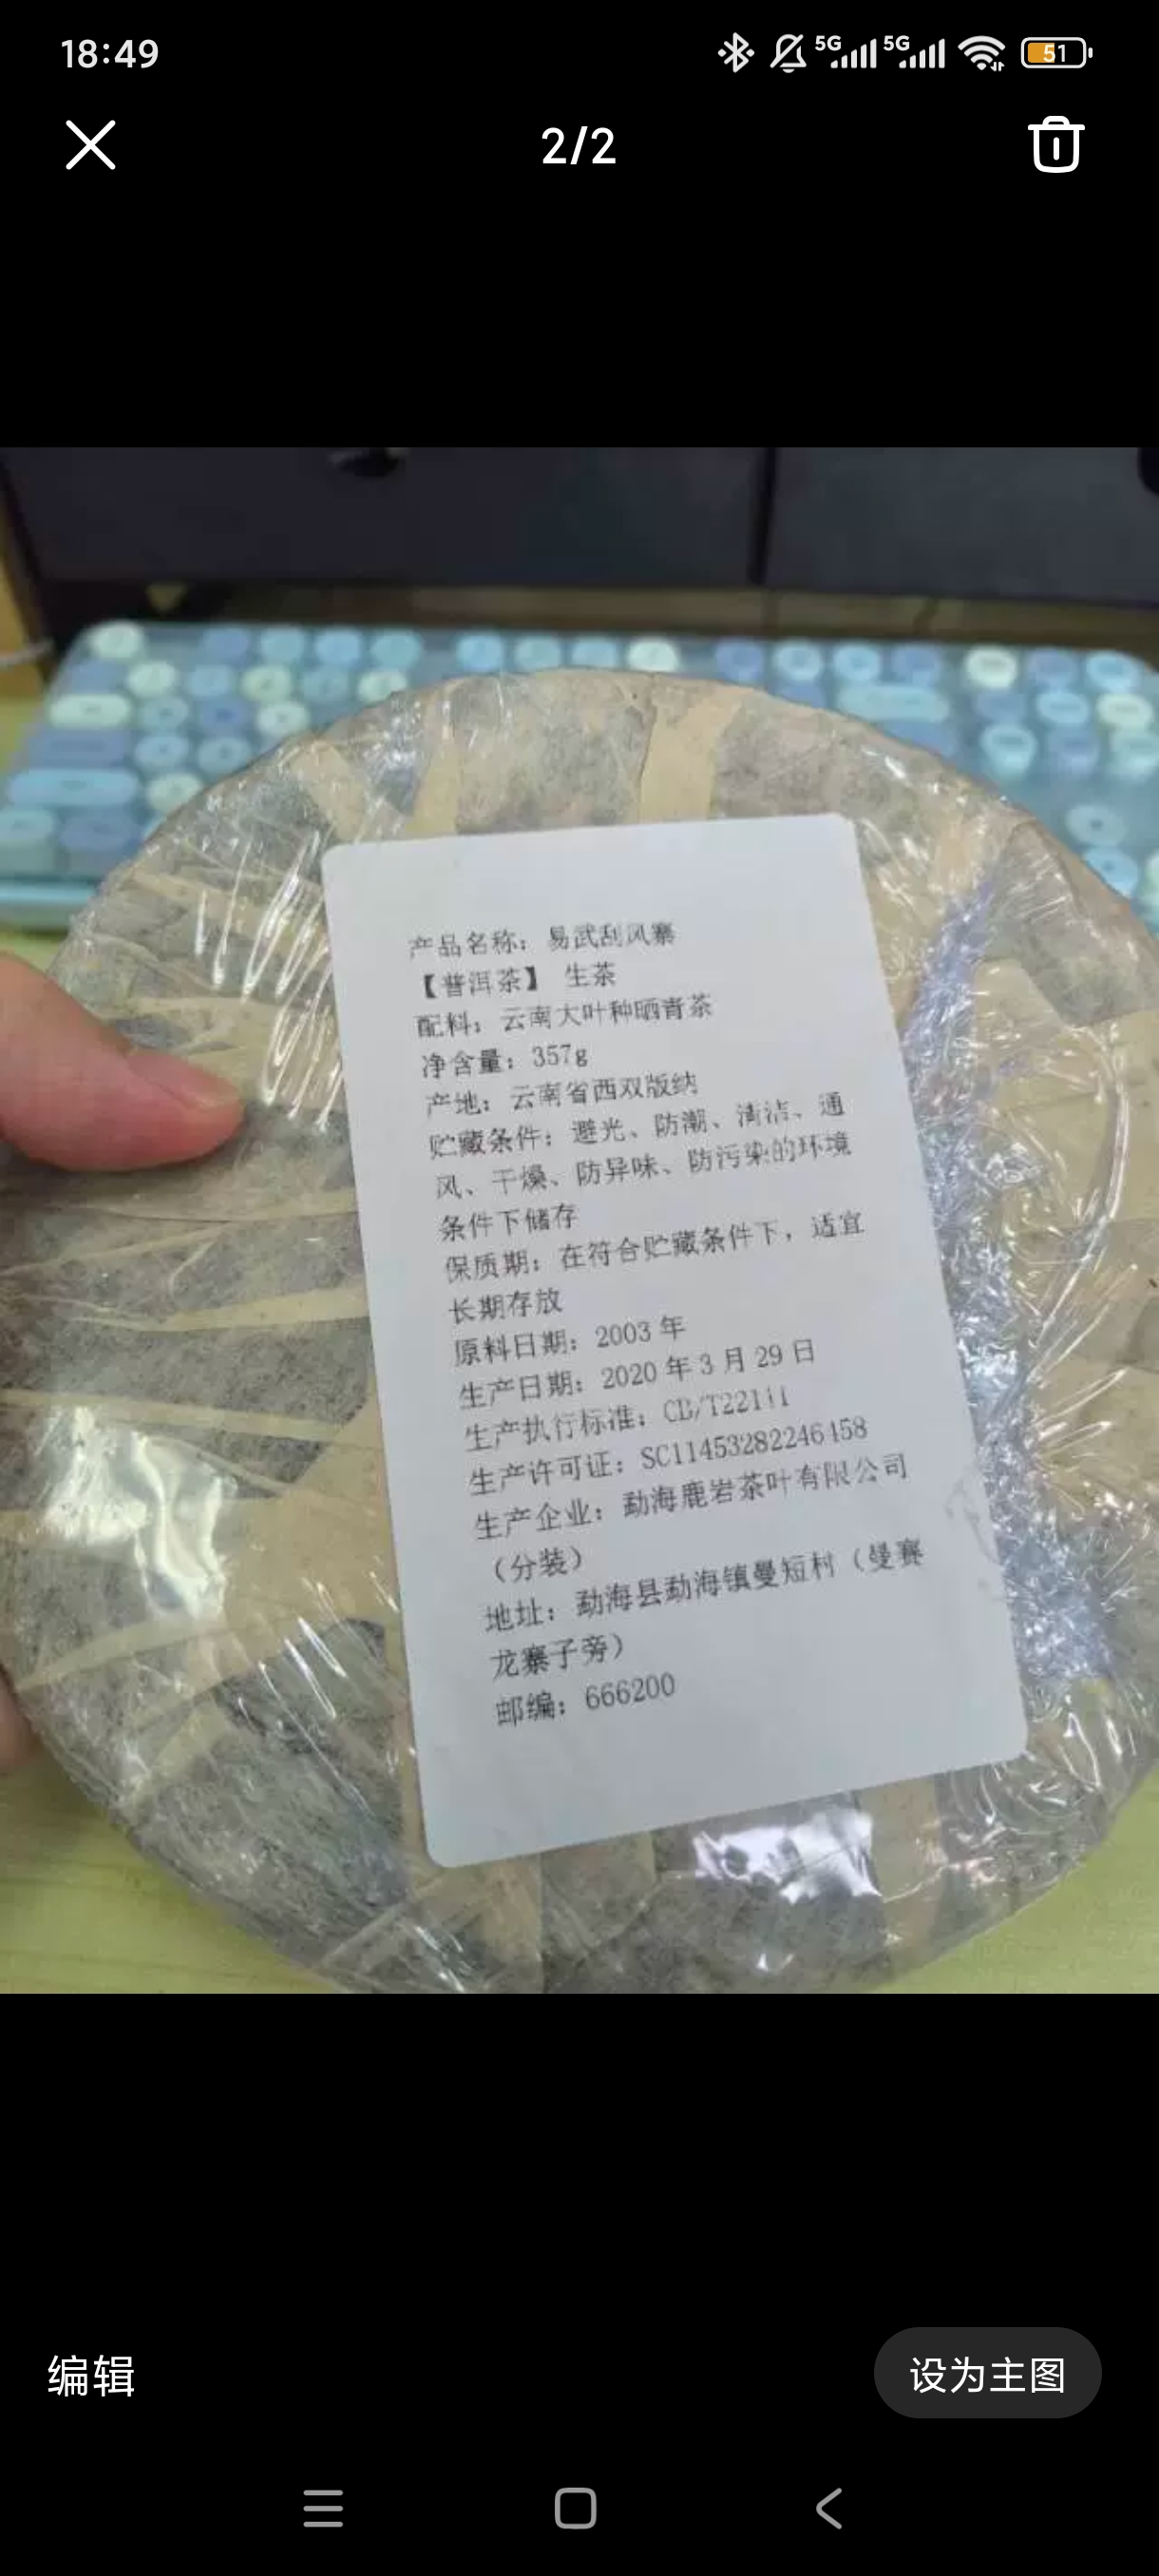 18:49
5G 5G 51
2/2
产品名称：易武刮风寨
【普洱茶】 生茶
配料：云南大叶种晒青茶
净含量：357g
产地：云南省西双版纳
贮藏条件：避光、防潮、清洁、通
风、干燥、防异味、防污染的环境
条件下储存
保质期：在符合贮藏条件下，适宜
长期存放
原料日期：2003 年
生产日期：2020 年 3 月 29 日
生产执行标准：GB/T22111
生产许可证：SC11453282246458
生产企业：勐海鹿岩茶叶有限公司
（分装）
地址：勐海县勐海镇曼短村（曼赛
龙寨子旁）
邮编：666200
编辑
设为主图